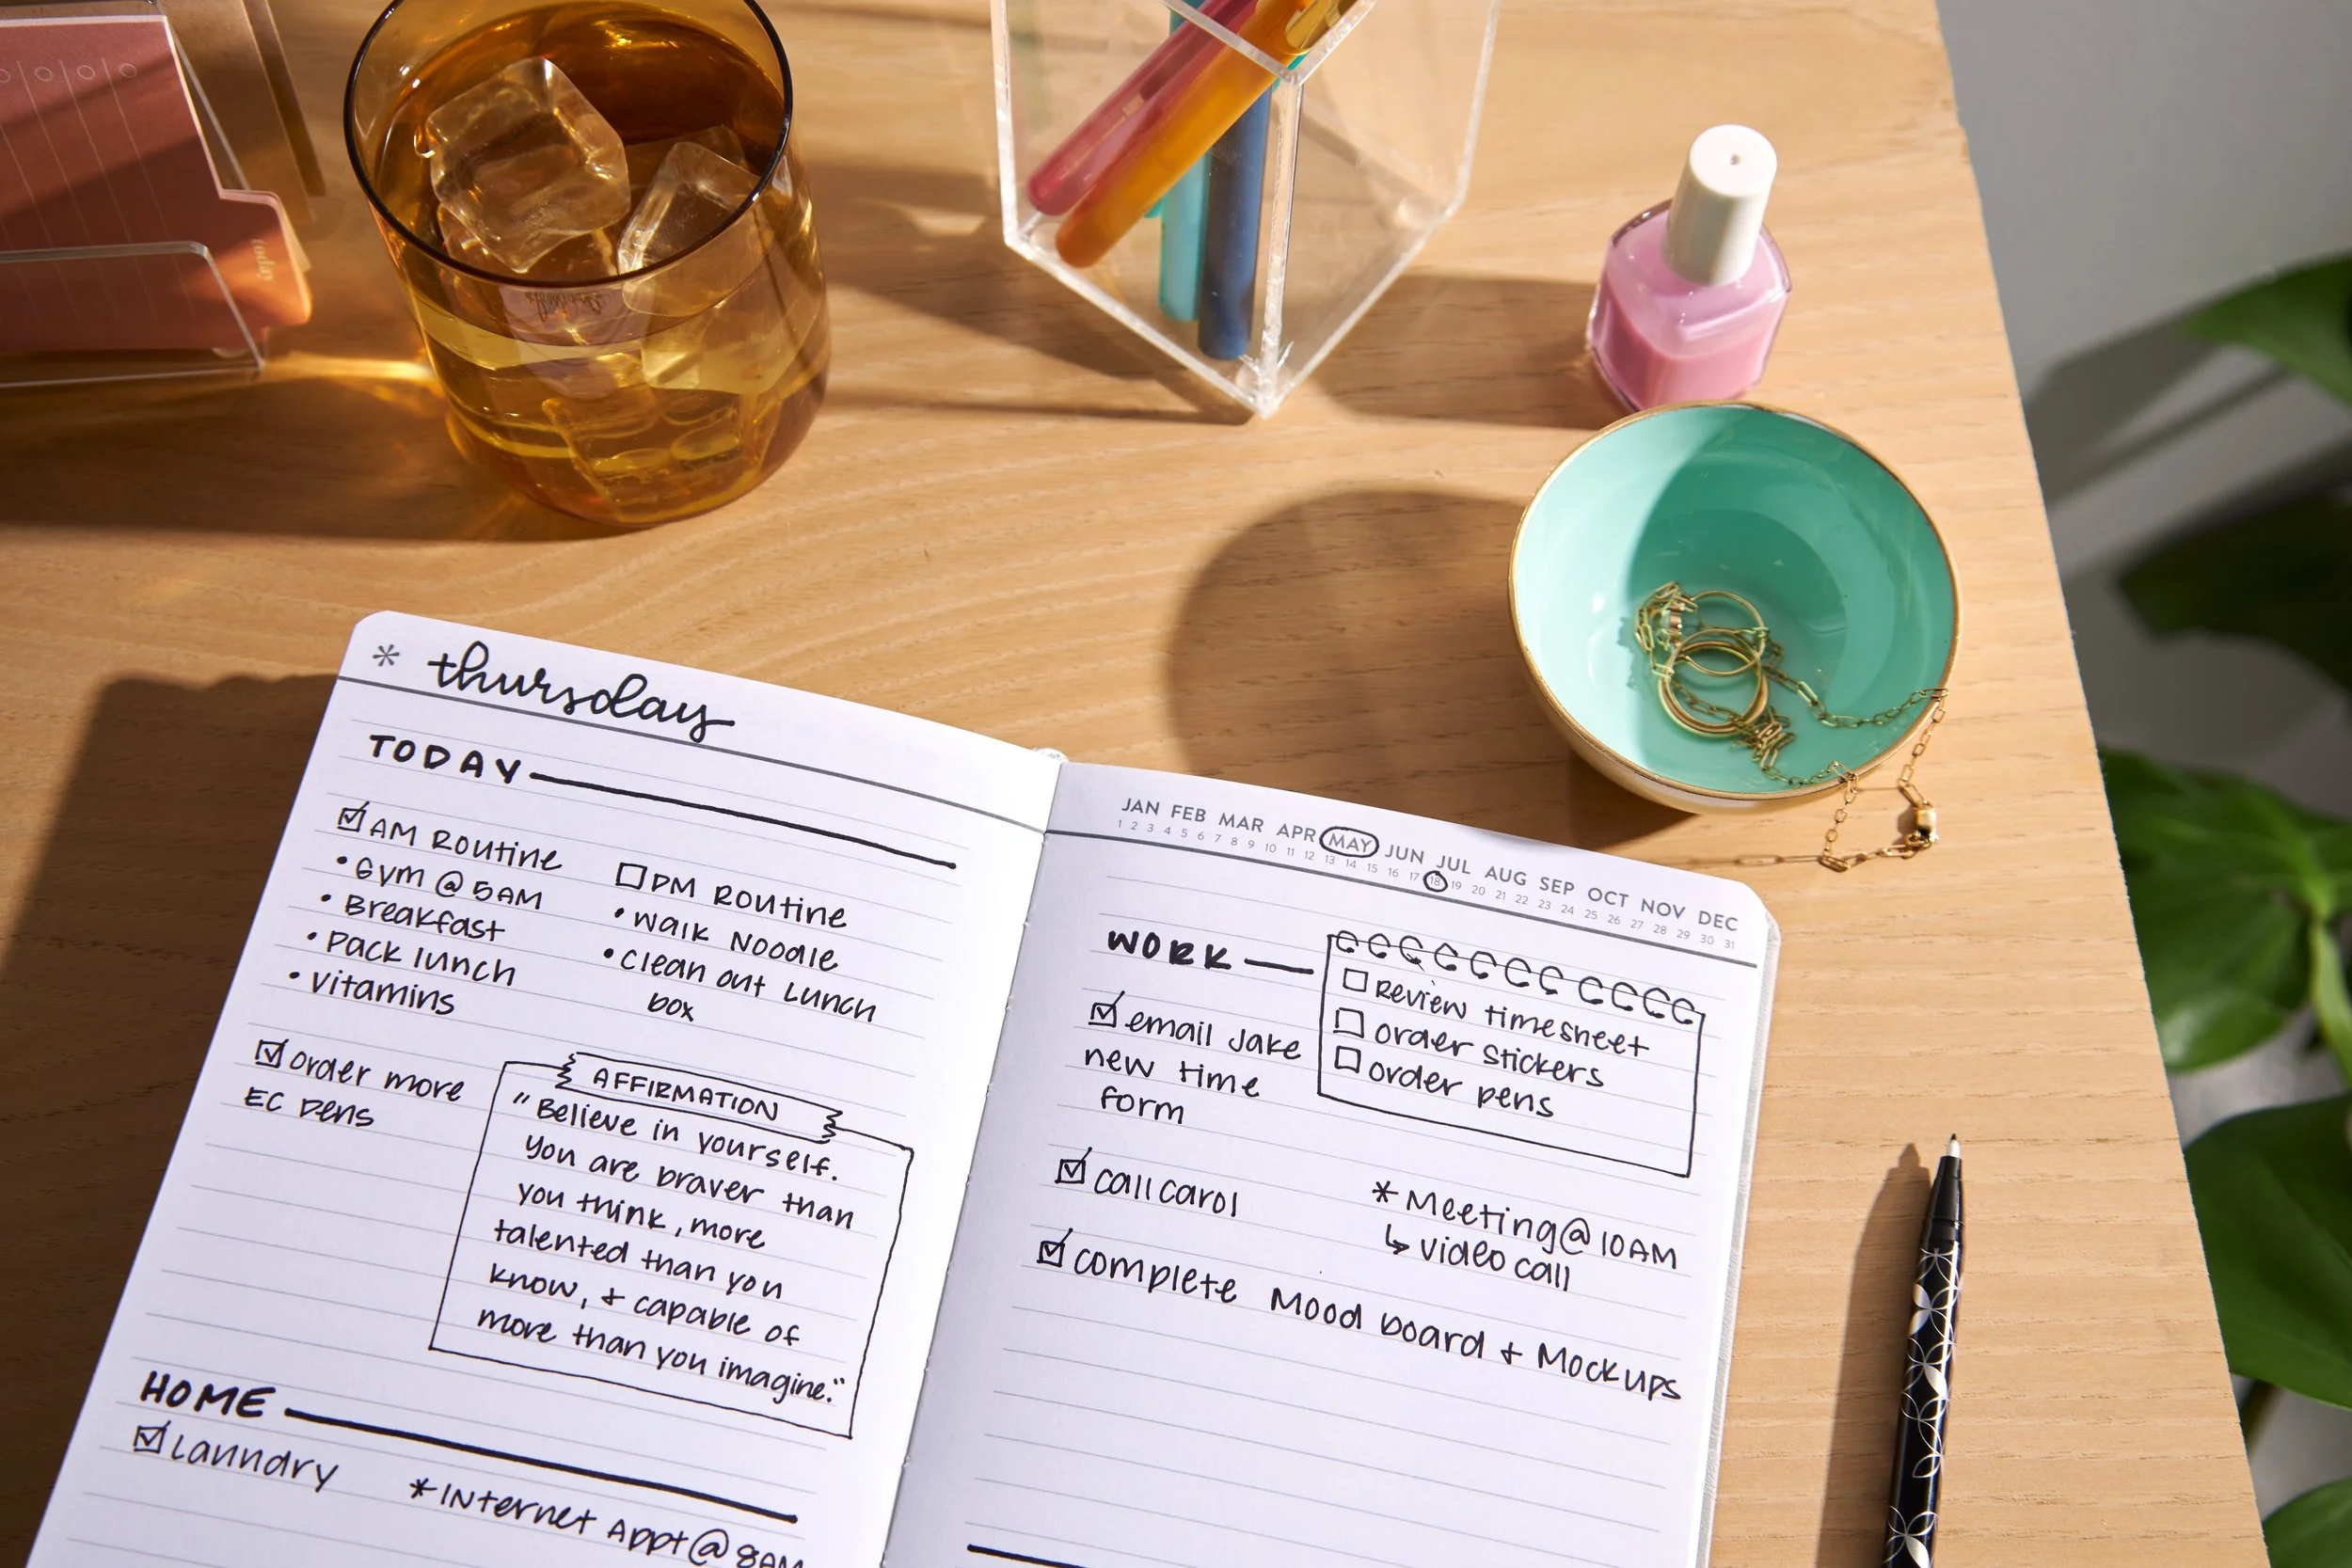 today
* thursday
TODAY
☑ AM ROUTINE
• GYM @ 5AM
• Breakfast
• Pack lunch
• Vitamins
☐ PM ROUTINE
• WALK NOODLE
• Clean out LUNCH
box
☑ order more
EC pens
AFFIRMATION
"Believe in yourself.
You are braver than
you think, more
talented than you
know, + capable of
more than you imagine."
HOME
☑ Laundry
*INternet Appt@8AM
JAN FEB MAR APR MAY JUN JUL AUG SEP OCT NOV DEC
1 2 3 4 5 6 7 8 9 10 11 12 13 14 15 16 17 18 19 20 21 22 23 24 25 26 27 28 29 30 31
WORK
☐ Review timesheet
☐ order stickers
☐ order pens
☑ email Jake
new time
form
☑ call carol
* Meeting@10AM
↳ video call
☑ complete Mood board + Mockups